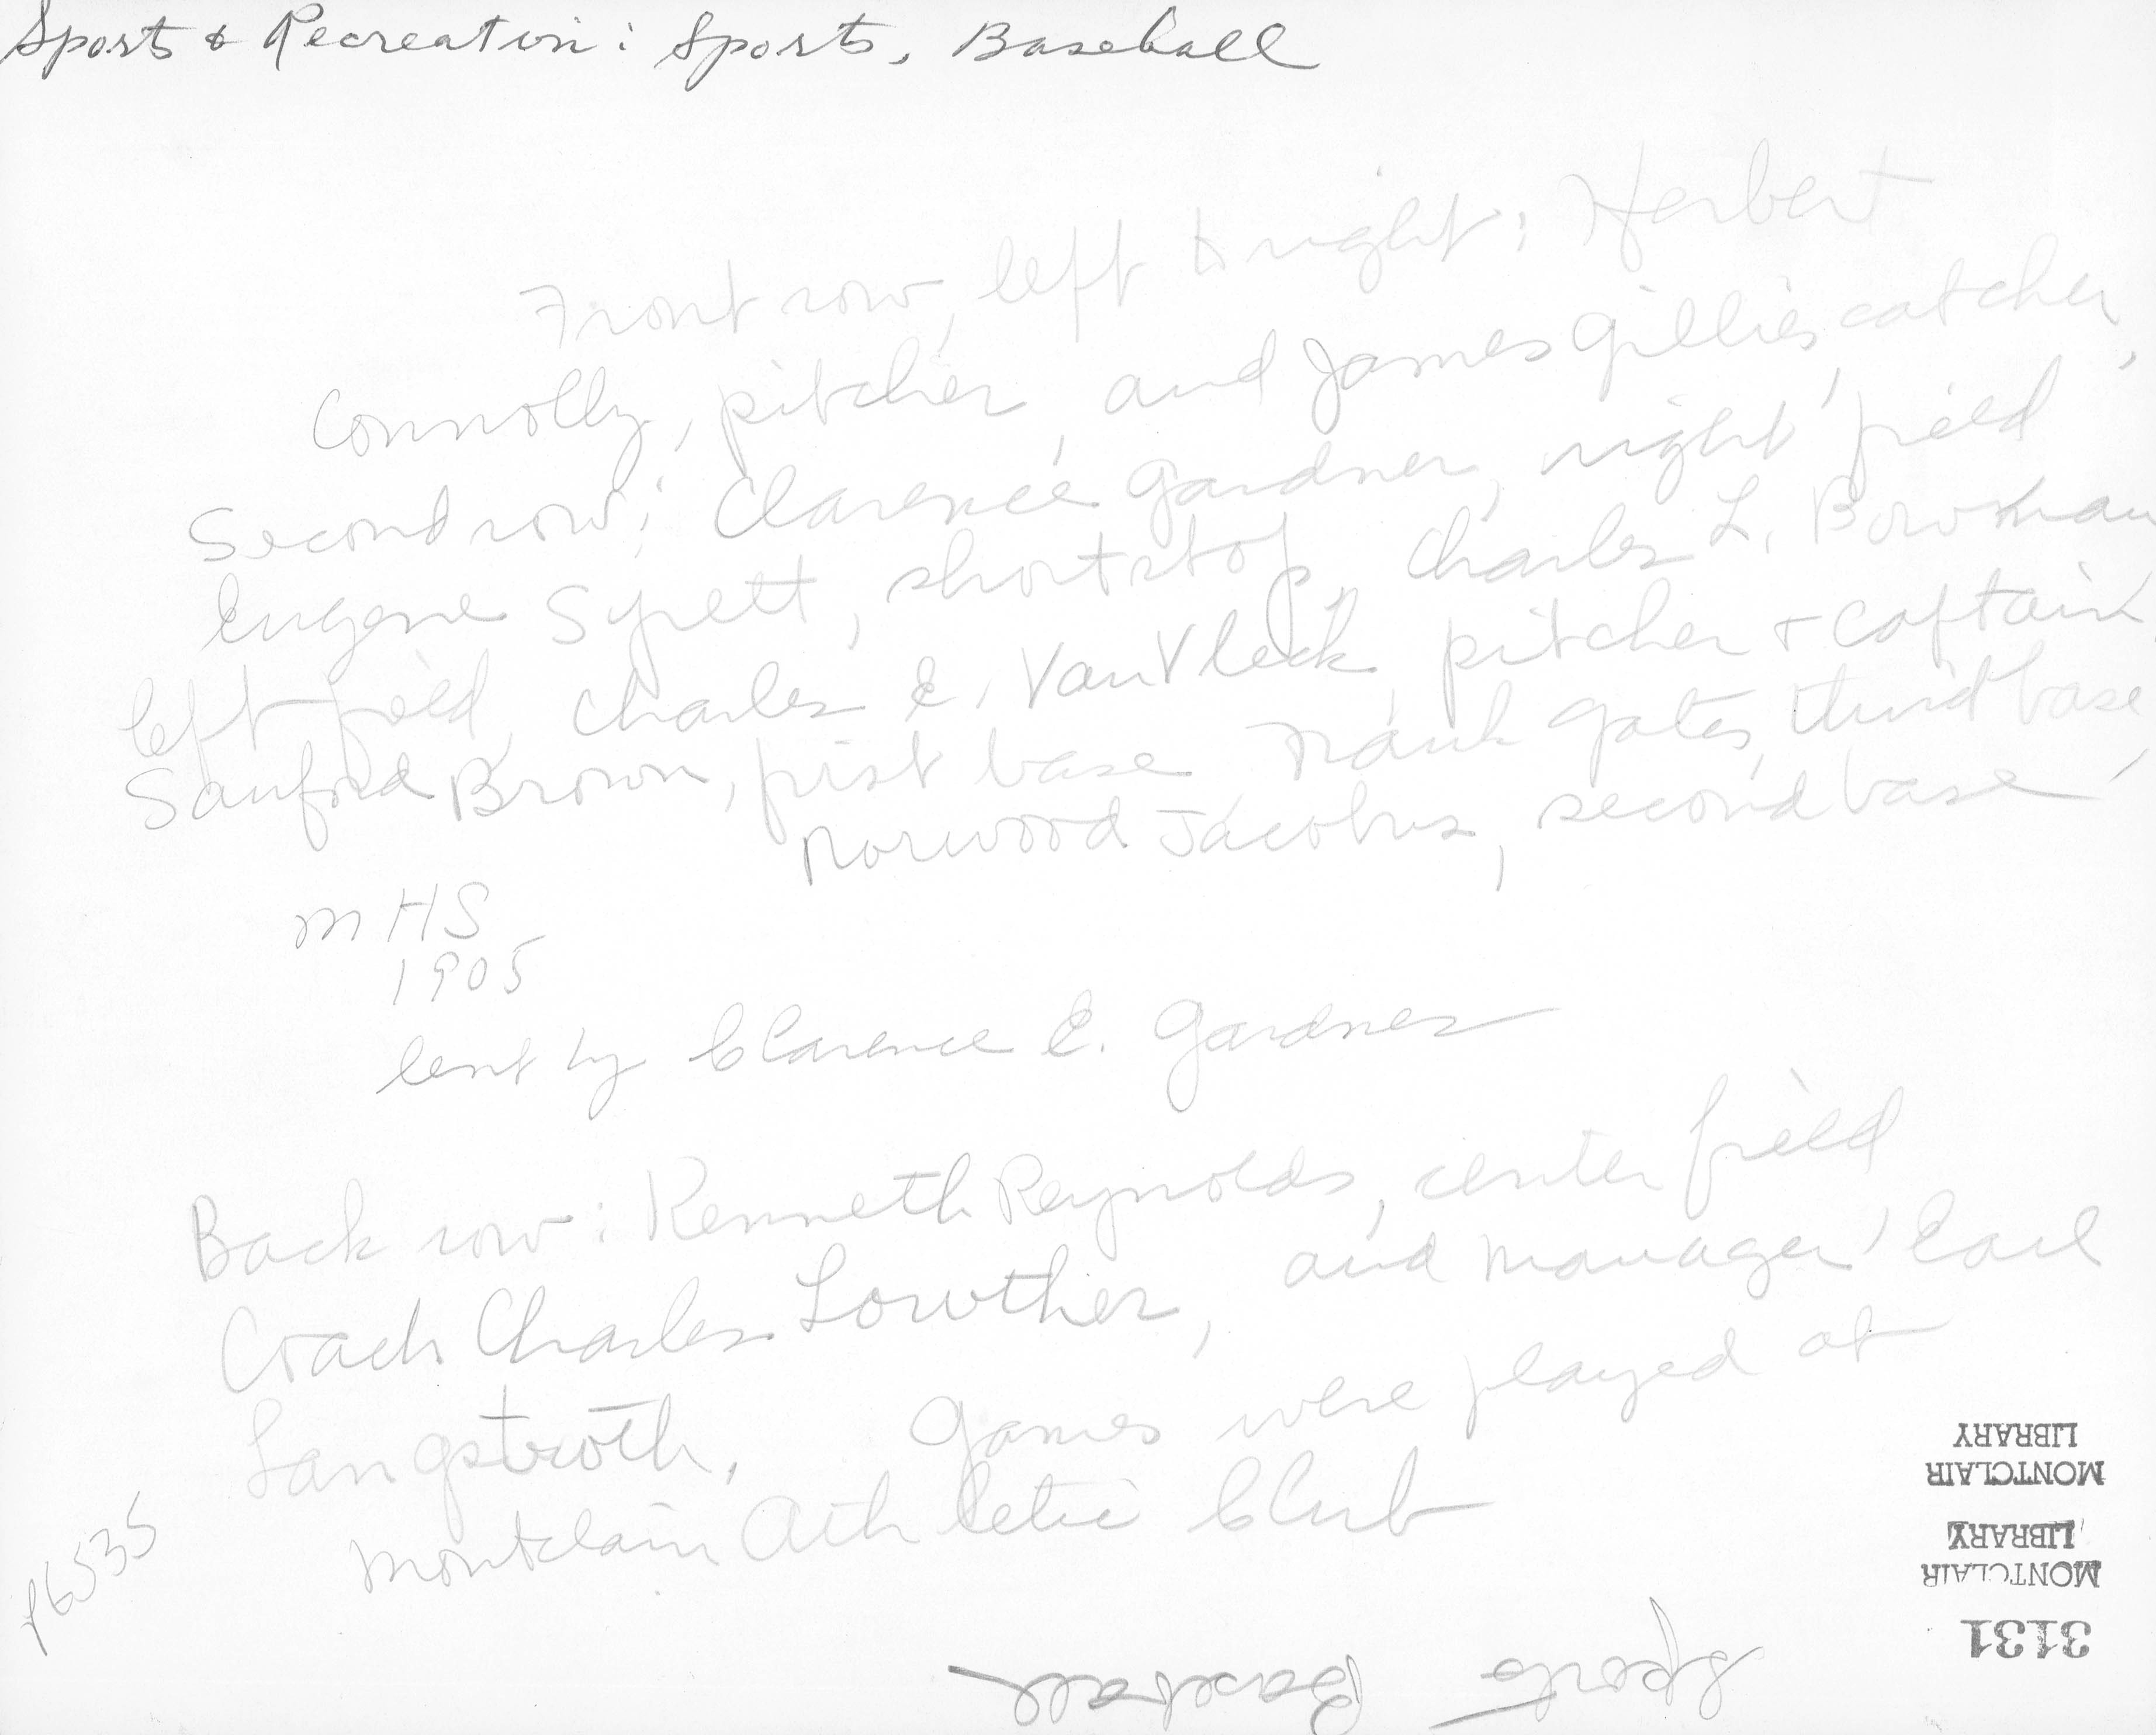 Sports & Recreation: Sports, Baseball
Front row, left to right: Herbert
Connolly, pitcher, and James Gillies, catcher,
Second row: Clarence Gardner, right field,
Eugene Syrett, shortstop, Charles L. Bowman
left field, Charles E. VanVleck pitcher & captain,
Sanford Brown, first base, Frank Gates, third base,
Norwood Jacobus, second base
MHS
1905
lent by Clarence E. Gardner
Back row: Kenneth Reynolds, center field,
Coach Charles Lowther, and manager Earl
Langstroth. Games were played at
Montclair Athletic Club
p6535
LIBRARY
MONTCLAIR
LIBRARY
MONTCLAIR
3131
Sports Baseball